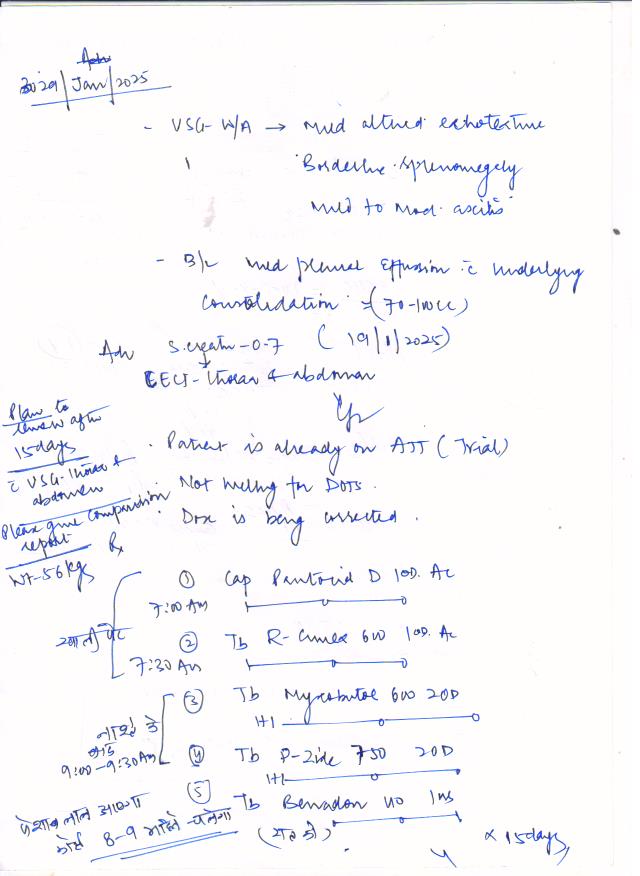 29/Jan/2025
- USG-W/A → Mild altered echotexture
Borderline splenomegaly
Mild to mod. ascitis
- B/L mild pleural effusion c̄ underlying
consolidation (70-100cc)
Adv S.creatn-0.7 (19/1/2025)
CECT-thorax & abdomen
Plan to
review after
15 days
c̄ USG-thorax &
abdomen
Please give comparison
report
Wt-56 kgs
. Patient is already on ATT (Trial)
. Not willing for DOTS.
. Dose is being corrected.
Rx
खाली पेट
① Cap Pantocid D 1OD. AC
7:00 AM
② Tb R-Cinex 600 1OD. AC
7:30 AM
नाश्ते के
बाद
9:00-9:30 AM
③ Tb Mycobutol 600 2OD
1+1
④ Tb P-Zide 750 2OD
1+1
⑤ Tb Benadon 40 1HS
(रात को)
x 15 days
पेशाब लाल आएगा
कोर्स 8-9 महीने चलेगा